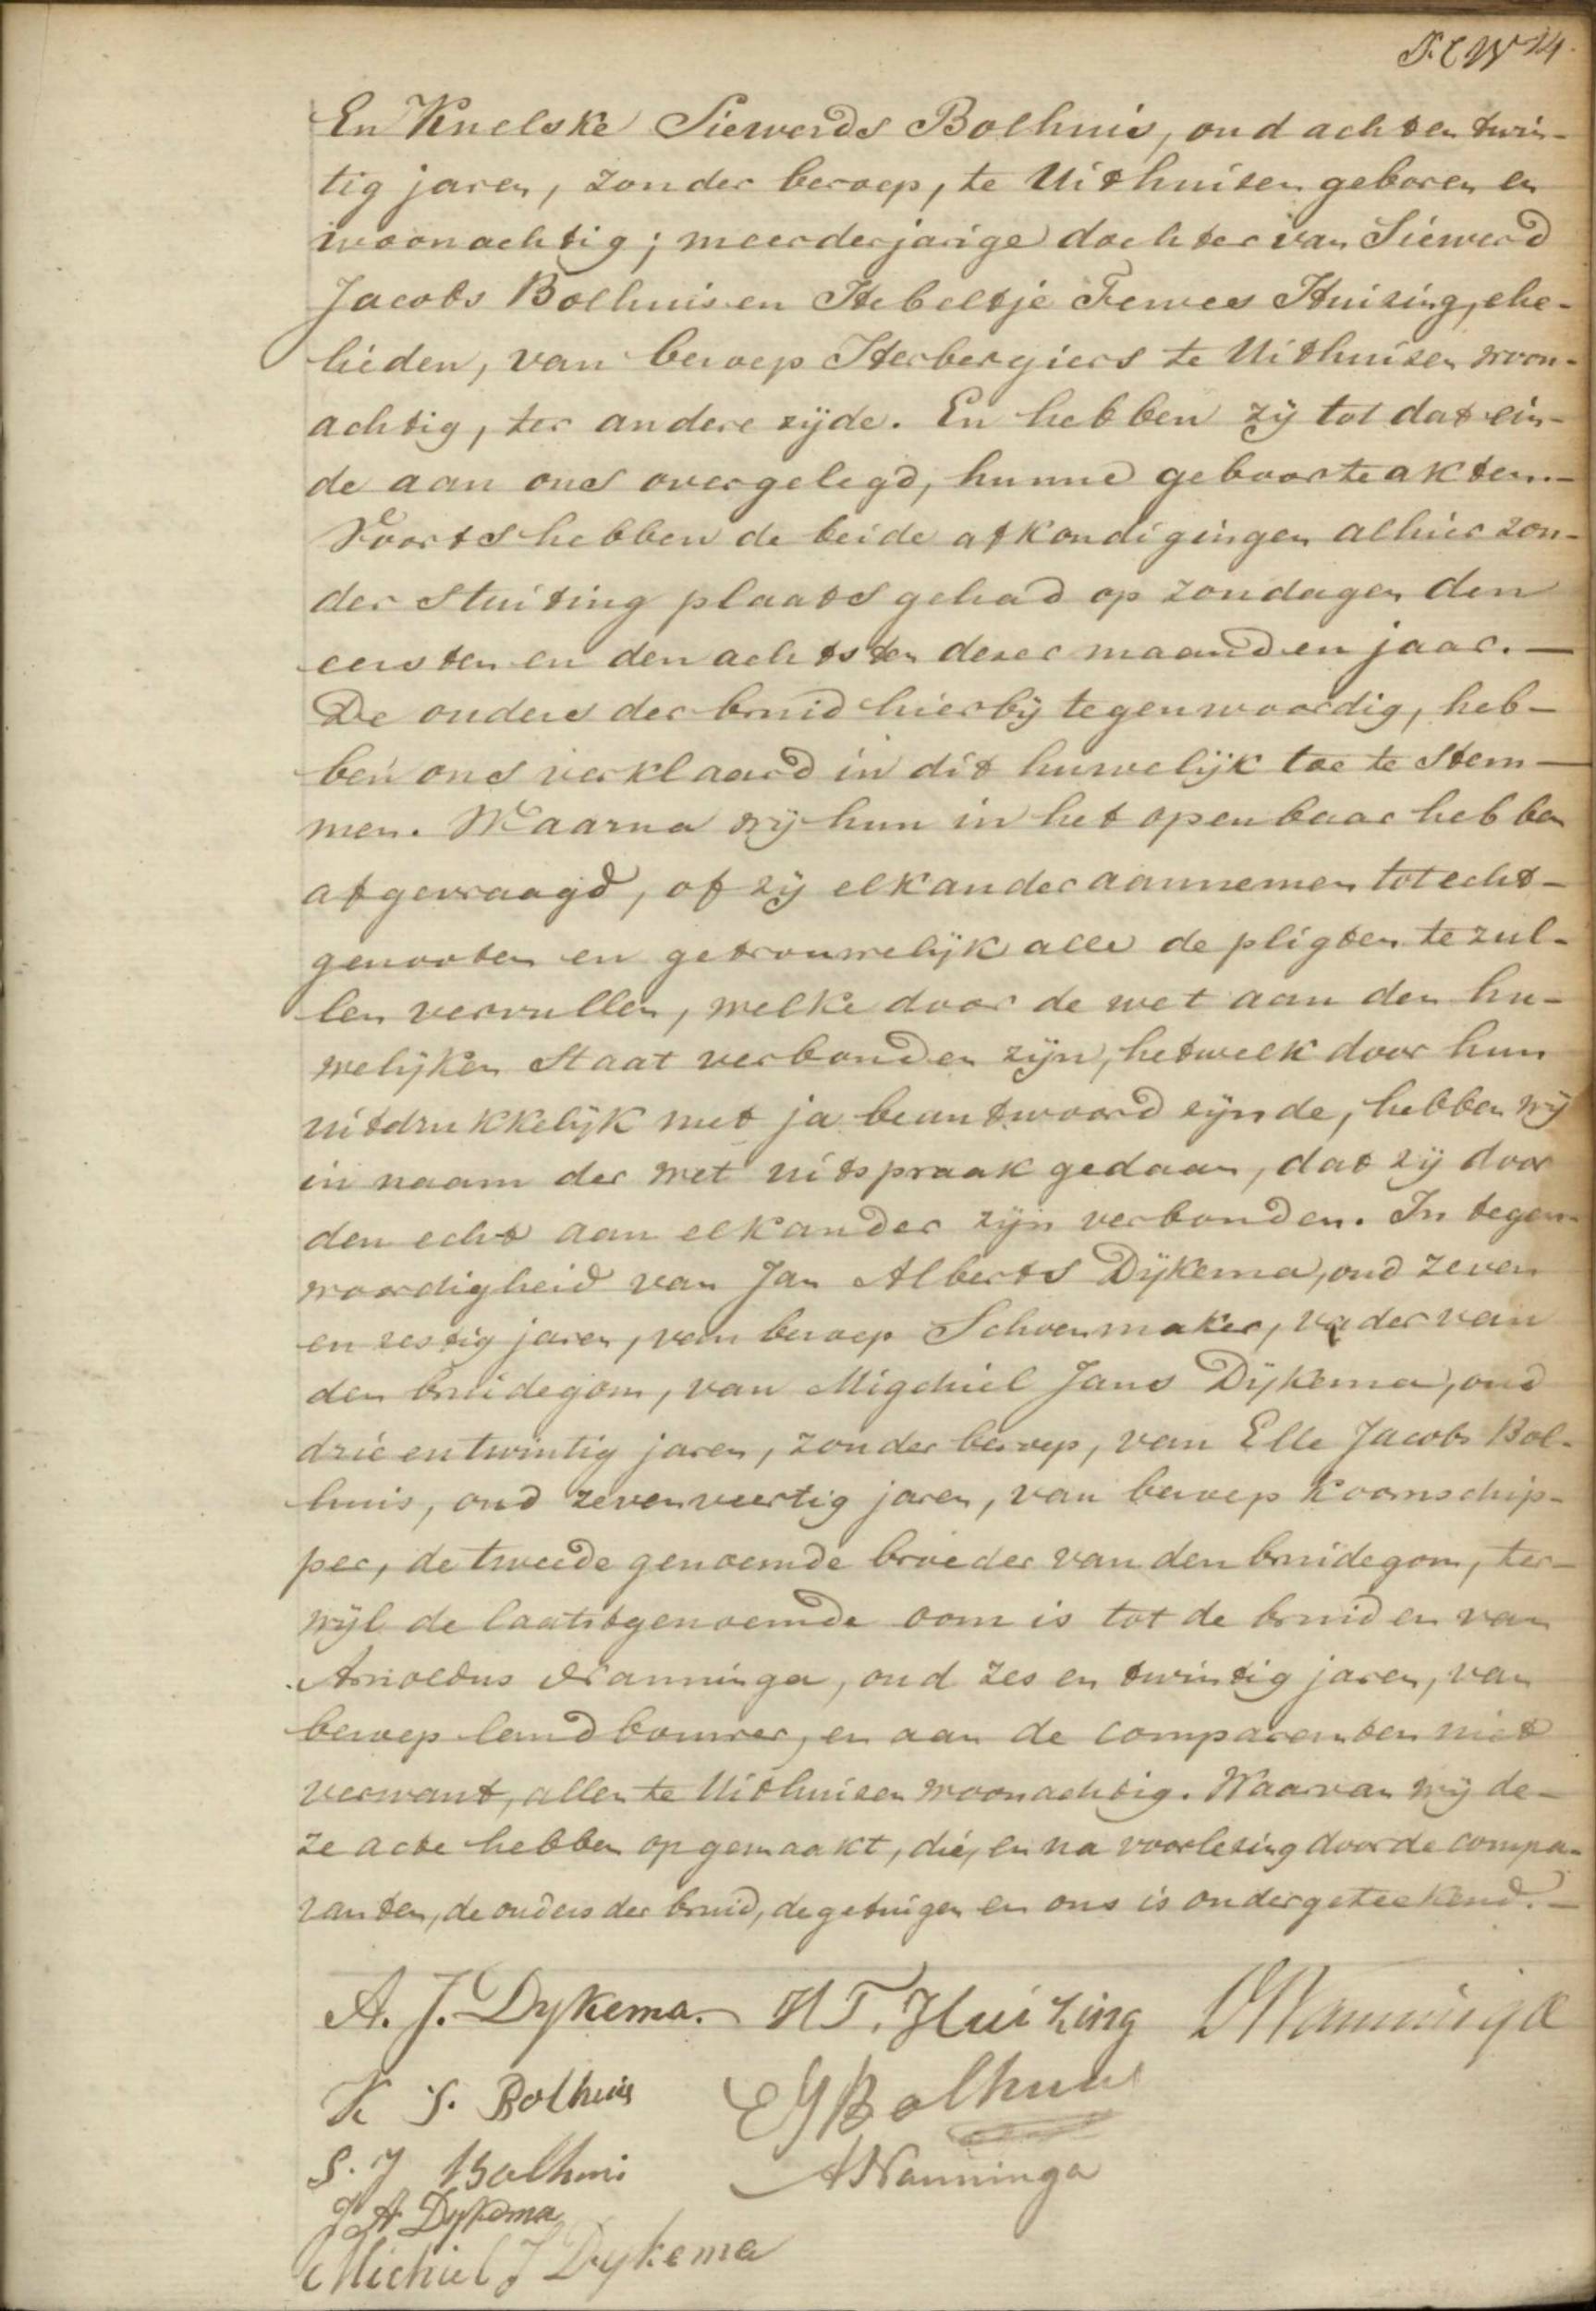 14.
En Knelske Siewerds Bolhuis, oud acht en twin-
tig jaren, zonder beroep, te Uithuizen geboren en
woonachtig; meerderjarige dochter van Siewerd
Jacobs Bolhuis en Hebeltje Fewes Huizing, ehe-
lieden, van beroep Herbergiers te Uithuizen woon-
achtig, ter andere zijde. En hebben zij tot dat ein-
de aan ons overgelegd, hunne geboorteakten.—
Voorts hebben de beide afkondigingen alhier zon-
der stuiting plaats gehad op zondagen den
eersten en den achtsten dezer maand en jaar.—
De ouders der bruid hierbij tegenwoordig, heb-
ben ons verklaard in dit huwelijk toe te stem-
men. Waarna wij hun in het openbaar hebben
afgevraagd, of zij elkander aannemen tot echt-
genooten en getrouwelijk alle de pligten te zul-
len vervullen, welke door de wet aan den hu-
welijken Staat verbonden zijn, hetwelk door hun
uitdrukkelijk met ja beantwoord zijnde, hebben wij
in naam der wet uitspraak gedaan, dat zij door
den echt aan elkander zijn verbonden. In tegen-
woordigheid van Jan Alberts Dijkema, oud zeven
en zestig jaren, van beroep Schoenmaker, vader van
den bruidegom, van Migchiel Jans Dijkema, oud
drie en twintig jaren, zonder beroep, van Elle Jacobs Bol-
huis, oud zevenveertig jaren, van beroep Koornschip-
per, de tweede genoemde broeder van den bruidegom, ter-
wijl de laatstgenoemde oom is tot de bruid en van
Arnoldus Nanninga, oud zes en twintig jaren, van
beroep landbouwer, en aan de comparenten niet
verwant, allen te Uithuizen woonachtig. Waarvan wij de-
ze acte hebben opgemaakt, die, en na voorlezing door de compa-
ranten, de ouders der bruid, de getuigen en ons is ondergeteekend.—
A. J. Dykema. H T. Huizing Nanninga
K S. Bolhuis E J Bolhuis
S. J Bolhuis A Nanninga
J A Dykema
Michiel J Dykema